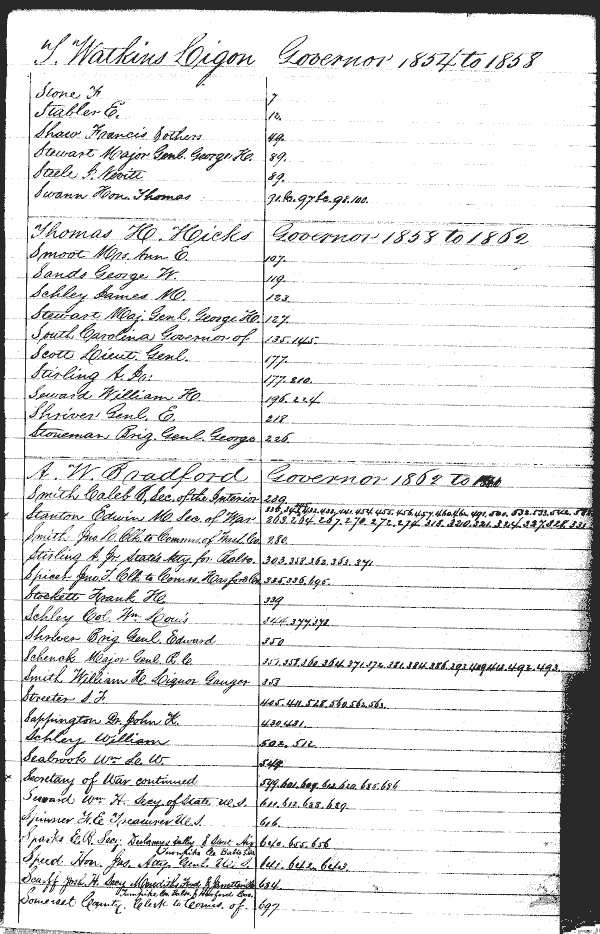 T. Watkins Ligon Governor 1854 to 1858
Stone F. 7
Stabler E. 12.
Shaw Francis & others 49.
Stewart Major Genl. George H. 89.
Steele J. Nevitt 89.
Swann Hon. Thomas
Thomas H. Hicks Governor 1858 to 1862
Smoot Mrs. Ann E. 107.
Sands George W. 119.
Schley James M. 123.
Stewart Maj. Genl. George H. 127.
South Carolina Governor of 135.145.
Scott Lieut. Genl. 177.
Stirling A. Jr. 177.210.
Seward William H. 196.224
Shriver Genl. E. 218
Stoneman Brig. Genl. George 226.
A. W. Bradford Governor 1862 to
Smith Caleb B, Sec. of the Interior 209.
Stanton Edwin M Sec. of War 203.264.267.270.272.274.
Smith Jno. Clk to Comms. of 280.
Stirling A. Jr. State's Atty. for Balto. 303.358.362.363.371
Spicer Jno. T. Clk. to Comrs. Harford Co. 335.336.695.
Stockett Frank H. 339
Schley Col. Wm. Louis 344.377.378.
Shriver Brig. Genl. Edward 350
Schenck Major Genl. R. C. 351.358.362.364.371.372.381.384.386.392.409.412.492.493.
Smith William H. Liquor Gauger 353
Streeter S. F. 405.411.528.560.562.563.
Sappington Dr. John K. 430.431.
Schley William 502. 512
Seabrook Wm. L. W. 549.
Secretary of War continued 599.601.609.612.620.685.686
Seward Wm. H. Secy. of State U.S. 611.612.638.639.
Spinner F. E. Treasurer U.S. 616.
Sparks E. R. Sec: 640.655.656
Turnpike Co. Balto.
Speed Hon. Jas. Atty. Genl. U.S. 641.642.643.
Scarff Josh. H. Secy. Merediths Ford & Jarrettsville 684.
Turnpike Co. Balto. & Harford Cos.
Somerset County. Clerk to Comrs. of. 697